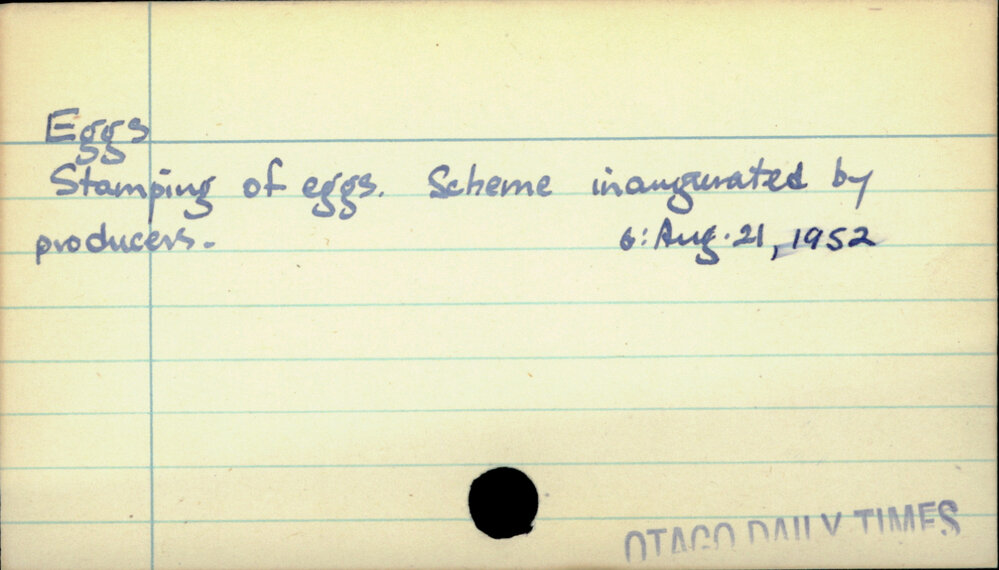 Eggs
Stamping of eggs. Scheme inaugurated by
producers. 6: Aug. 21, 1952
OTAGO DAILY TIMES